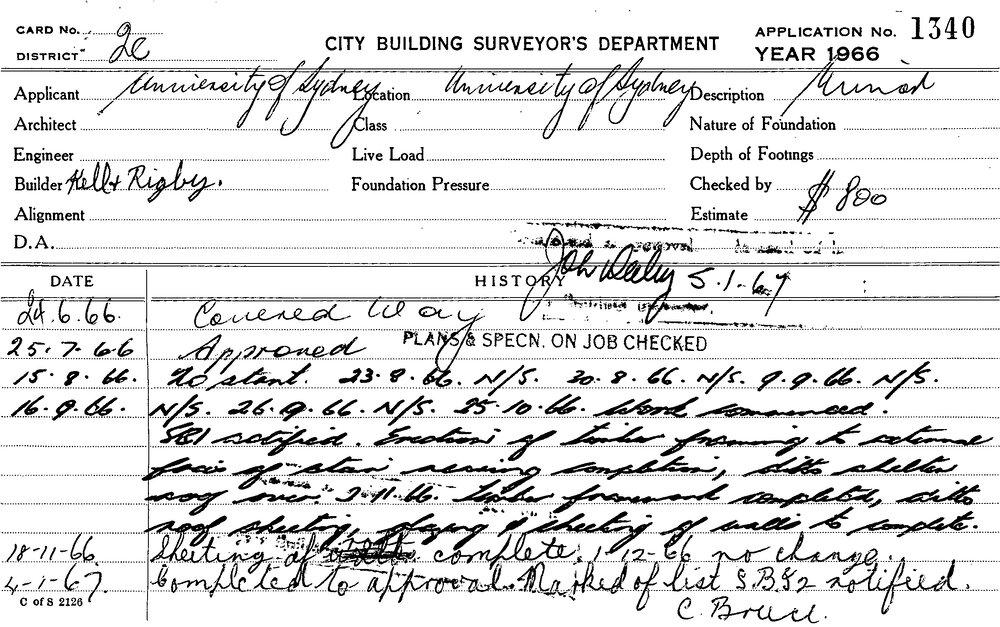 CARD No. 2c
DISTRICT
CITY BUILDING SURVEYOR'S DEPARTMENT
APPLICATION No. 1340
YEAR 1966
Applicant University of Sydney Location University of Sydney Description
Architect Class Nature of Foundation
Engineer Live Load Depth of Footings
Builder Kell & Rigby. Foundation Pressure Checked by
Alignment Estimate $ 800
D.A.
DATE HISTORY 5.1.67
24.6.66. Covered Way
25.7.66 Approved PLANS & SPECN. ON JOB CHECKED
15.8.66. No start. 23.8.66. N/S. 30.8.66. N/S. 9.9.66. N/S.
16.9.66. N/S. 26.9.66. N/S. 25.10.66. Work commenced.
SBI notified. Erection of timber framing to external
of stair nearing completion, ditto shelter
way over 2.11.66. Timber framework completed, ditto
roof sheeting, glazing & sheeting of walls to complete.
18-11-66. Sheeting of complete. 1-12-66 no change.
4-1-67. Completed to approval. Marked of list S.B.S2 notified.
C of S 2126 C. Bruce.